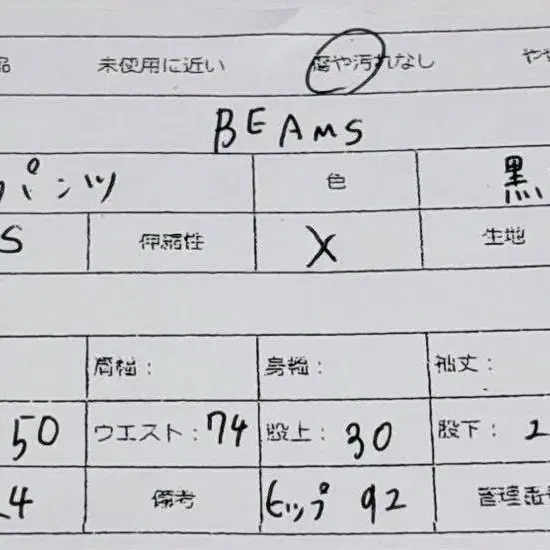 品 未使用に近い 傷や汚れなし やや
BEAMS
パンツ 色 黒
S 伸縮性 X 生地
肩幅: 身幅: 袖丈:
50 ウエスト: 74 股上: 30 股下: 2
4 備考 ヒップ 92 管理番号